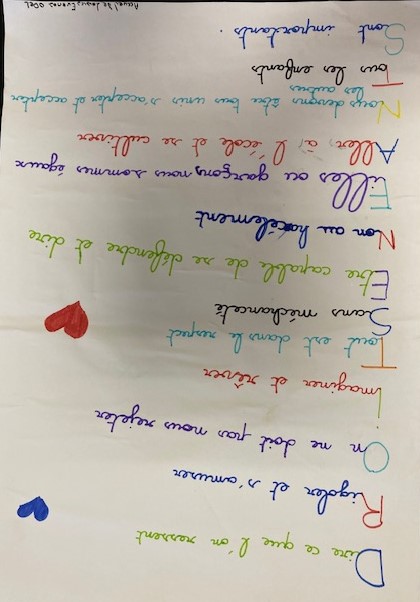 Dire ce que l'on ressent
Rigoler et s'amuser
On ne doit pas nous rejeter
Imaginer et rêver
Tout est dans le respect
Sans méchanceté
Etre capable de se défendre et dire
Non au harcèlement
Filles ou garçons, nous sommes égaux
Aller à l'école et se cultiver
Nous devons être tous unis s'accepter et accepter
les autres
Tous les enfants
Sont importants.